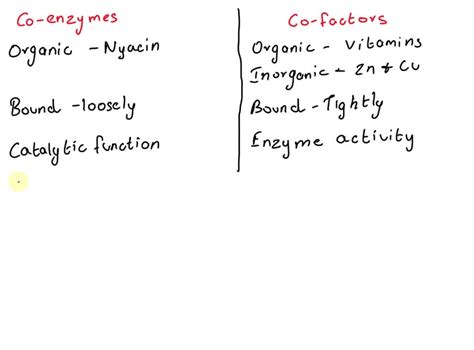 Co-enzymes
Organic - Nyacin
Bound - loosely
Catalytic function
Co-factors
Organic - Vitamins
Inorganic - Zn & Cu
Bound - Tightly
Enzyme activity